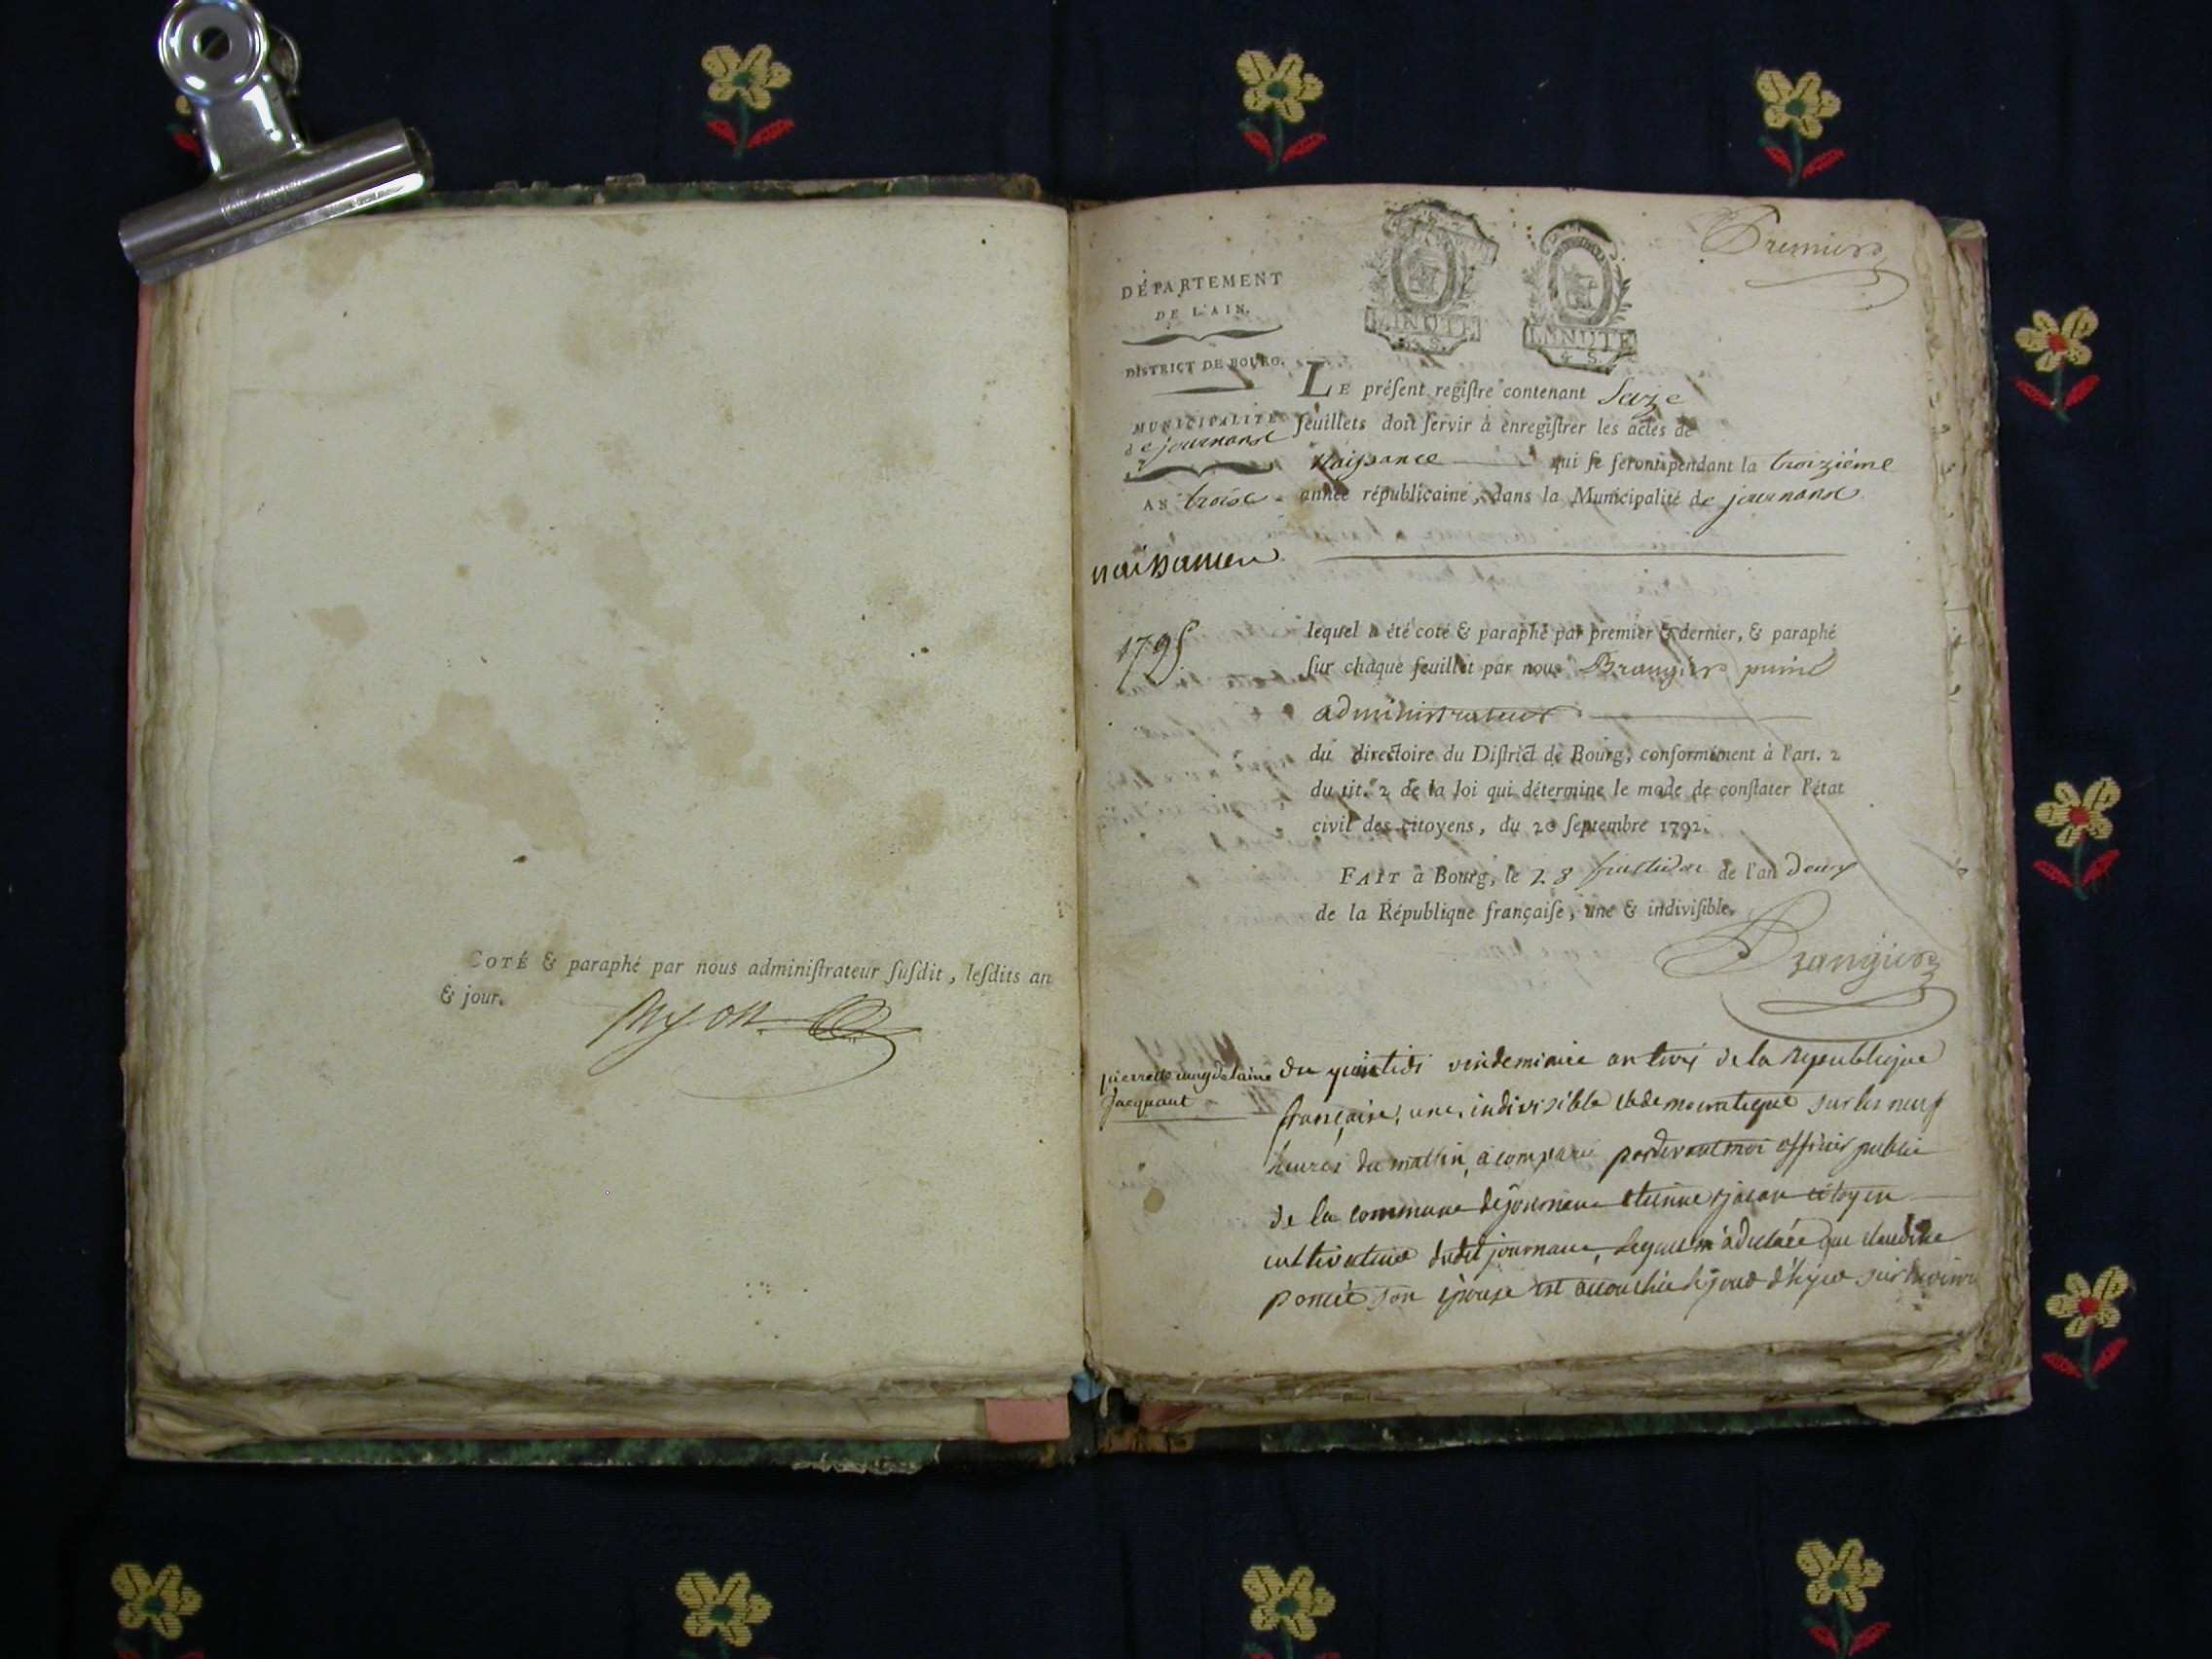 COTÉ & paraphé par nous adminiſtrateur ſuſdit, leſdits an
& jour.
Premier
MINUTE
4 S.
MINUTE
4 S.
DÉPARTEMENT
DE L'AIN.
DISTRICT DE BOURG.
MUNICIPALITÉ
de journans
AN trois
naissances
1795
LE préſent regiſtre contenant seize
feuillets doit ſervir à enregiſtrer les actes de
Naissance qui ſe feront pendant la troizième
année républicaine, dans la Municipalité de journans
lequel a été coté & paraphé par premier & dernier, & paraphé
ſur chaque feuillet par nous Brangier puiné
administrateur
du directoire du Diſtrict de Bourg, conformément à l'art. 2
du tit. 2 de la loi qui détermine le mode de conſtater l'état
civil des citoyens, du 20 ſeptembre 1792.
FAIT à Bourg, le 28 fructidor de l'an deux
de la République françaiſe, une & indiviſible.
Brangier
pierrette magdelaine
Jacquant
du quintidi vindemiaire an trois de la Republique
française, une, indivisible et democratique sur les neuf
heures du mattin, a comparu pardevant moi officier public
de la commune de journans etienne citoyen
cultivateur dudit journans, lequel m'a declaré que claudine
poncet son épouse est accouchée le jour d'hyer sur